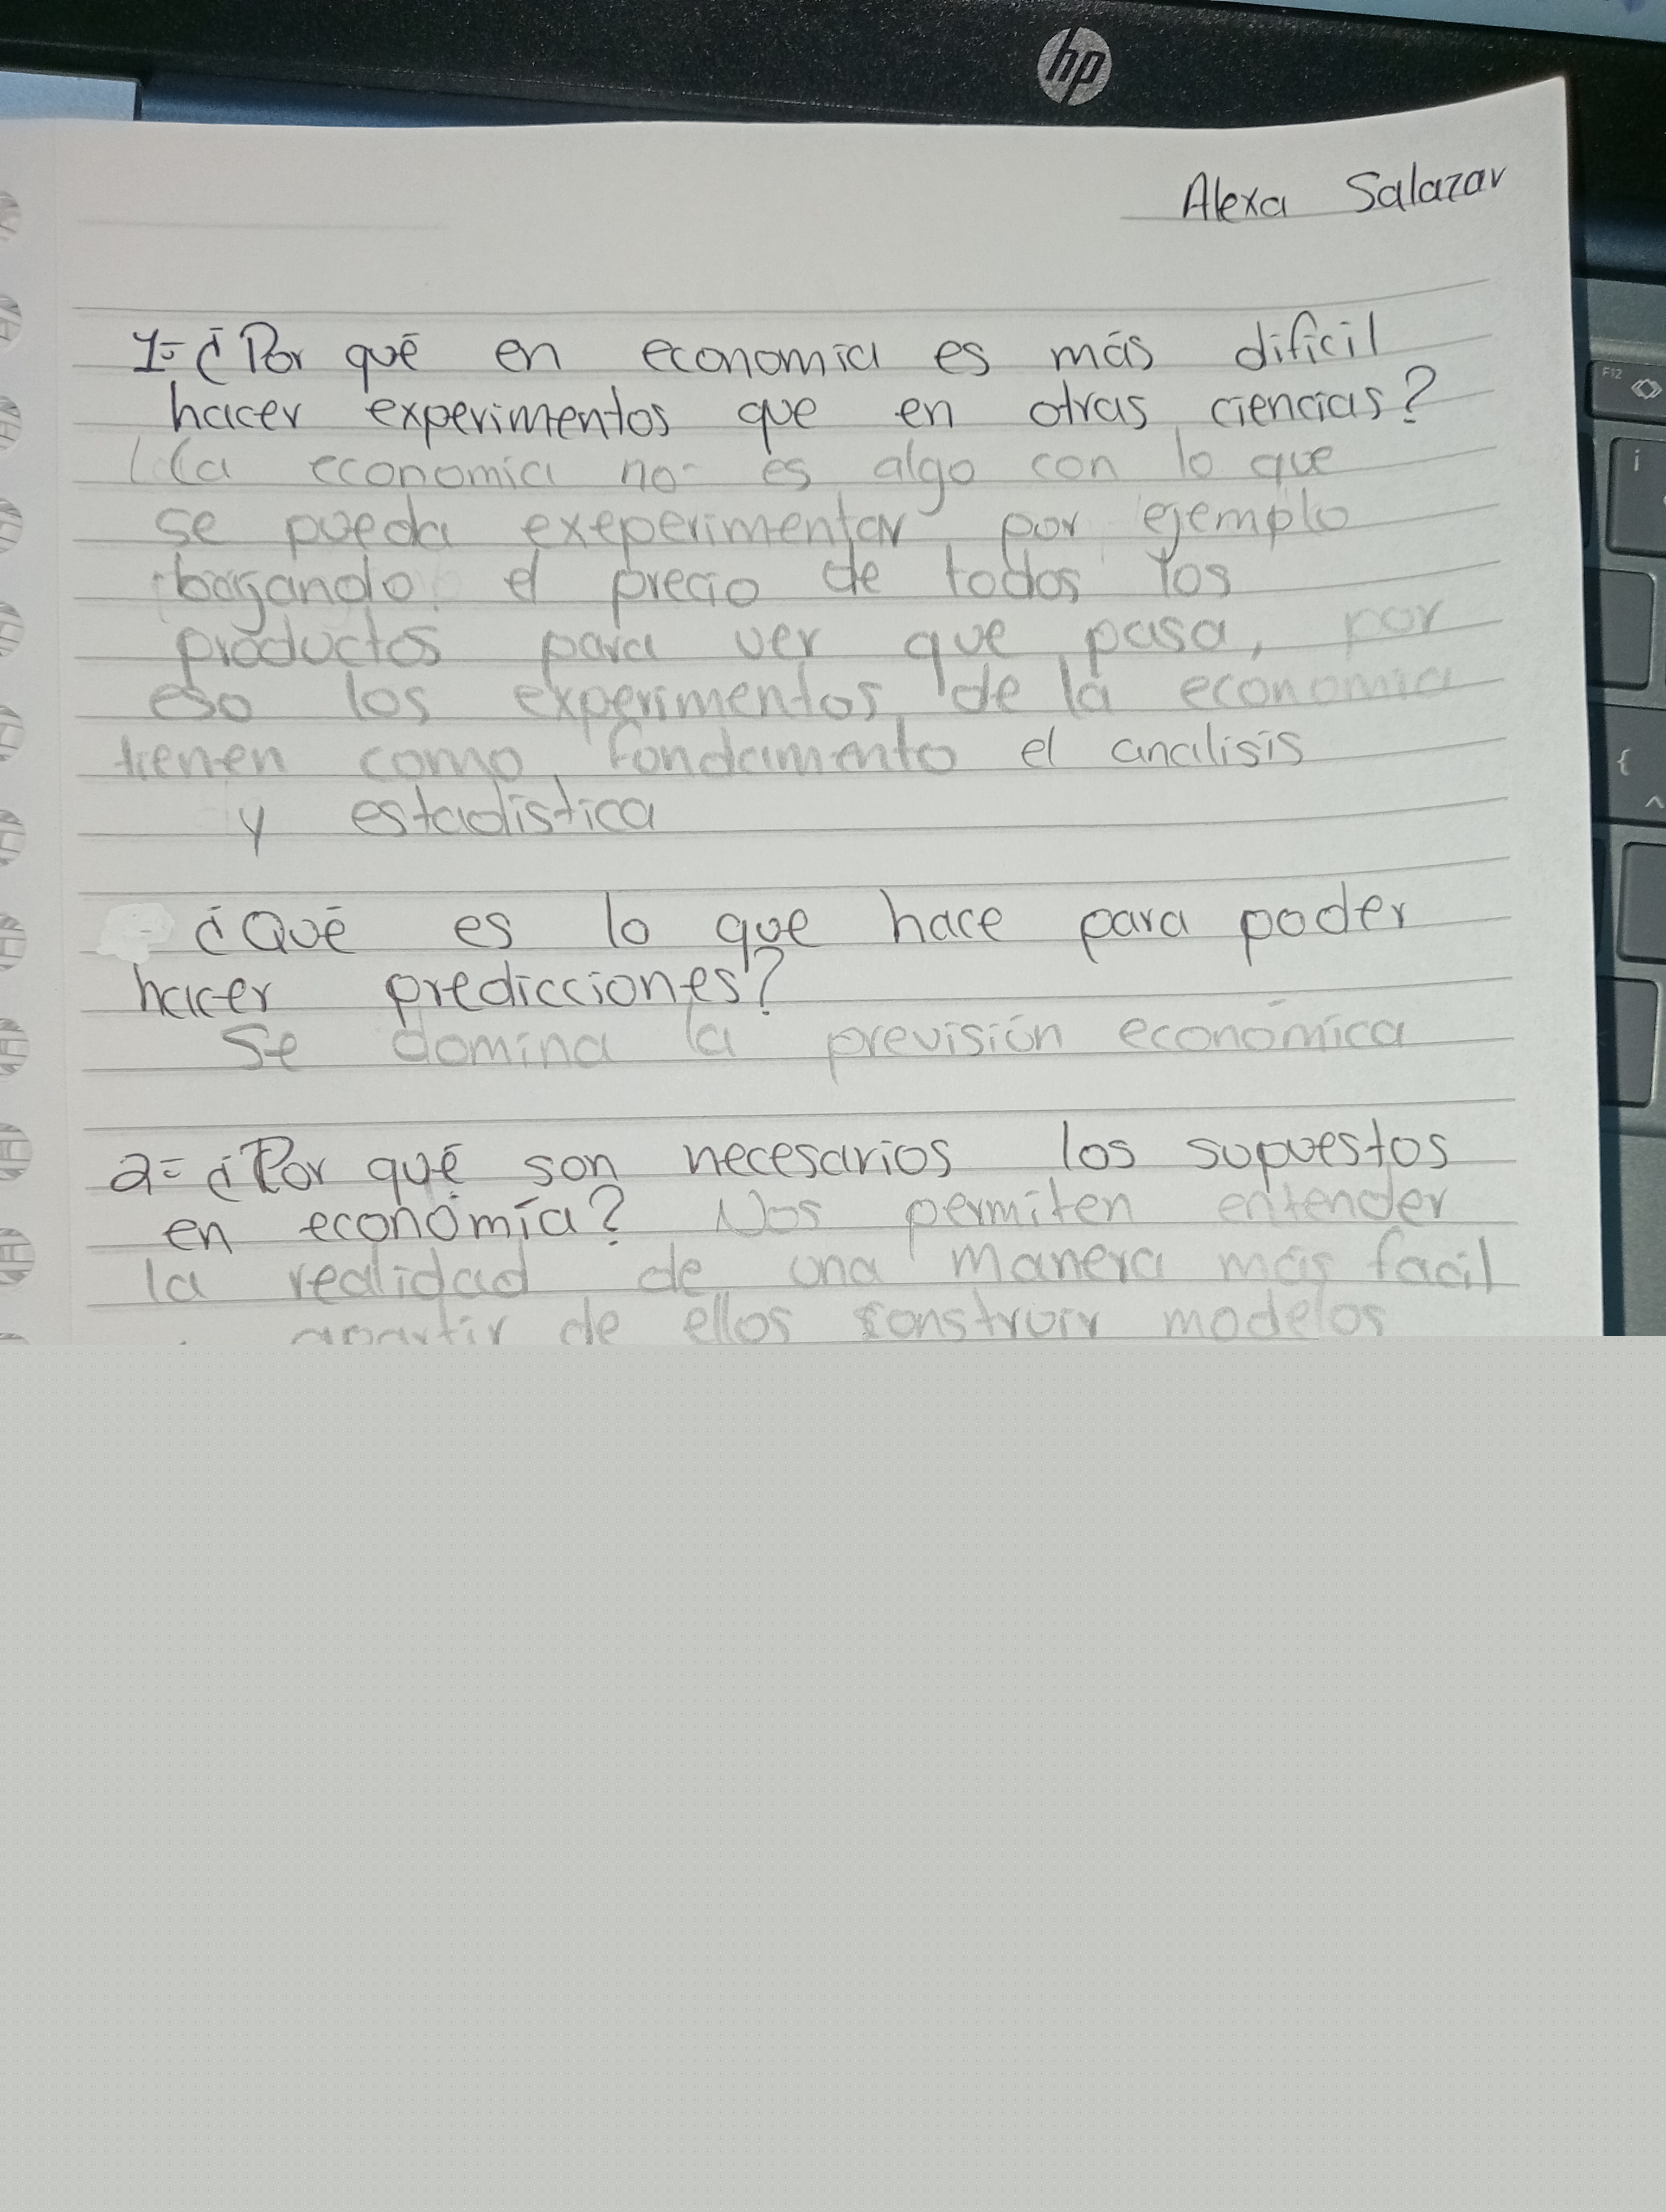 hp
Alexa Salazar
1= ¿Por qué en economia es más dificil
hacer experimentos que en otras ciencias?
La economia no es algo con lo que
se pueda exeperimentar por ejemplo
bajando el precio de todos los
productos para ver que pasa, por
eso los experimentos de la economia
tienen como fondamento el analisis
y estadistica
¿Qué es lo que hace para poder
hacer predicciones?
Se domina la previsión económica
2= ¿Por qué son necesarios los supuestos
en economía? Nos permiten entender
la realidad de una manera más facil
apartir de ellos construir modelos
F12
i
{
^